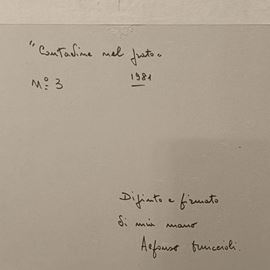 "Contadine nel prato"
Nº 3 1981
Dipinto e firmato
di mia mano
Alfonso